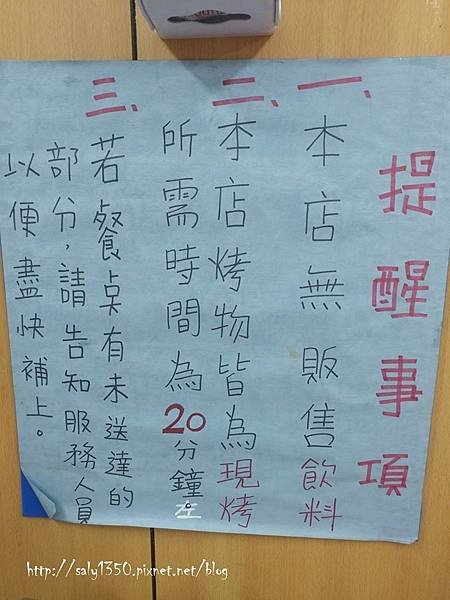 提醒事項
一、本店無販售飲料
二、本店烤物皆為現烤
所需時間為20分鐘。左
三、若餐奌有未送達的
部分,請告知服務人員
以便盡快補上。
http://saly1350.pixnet.net/blog